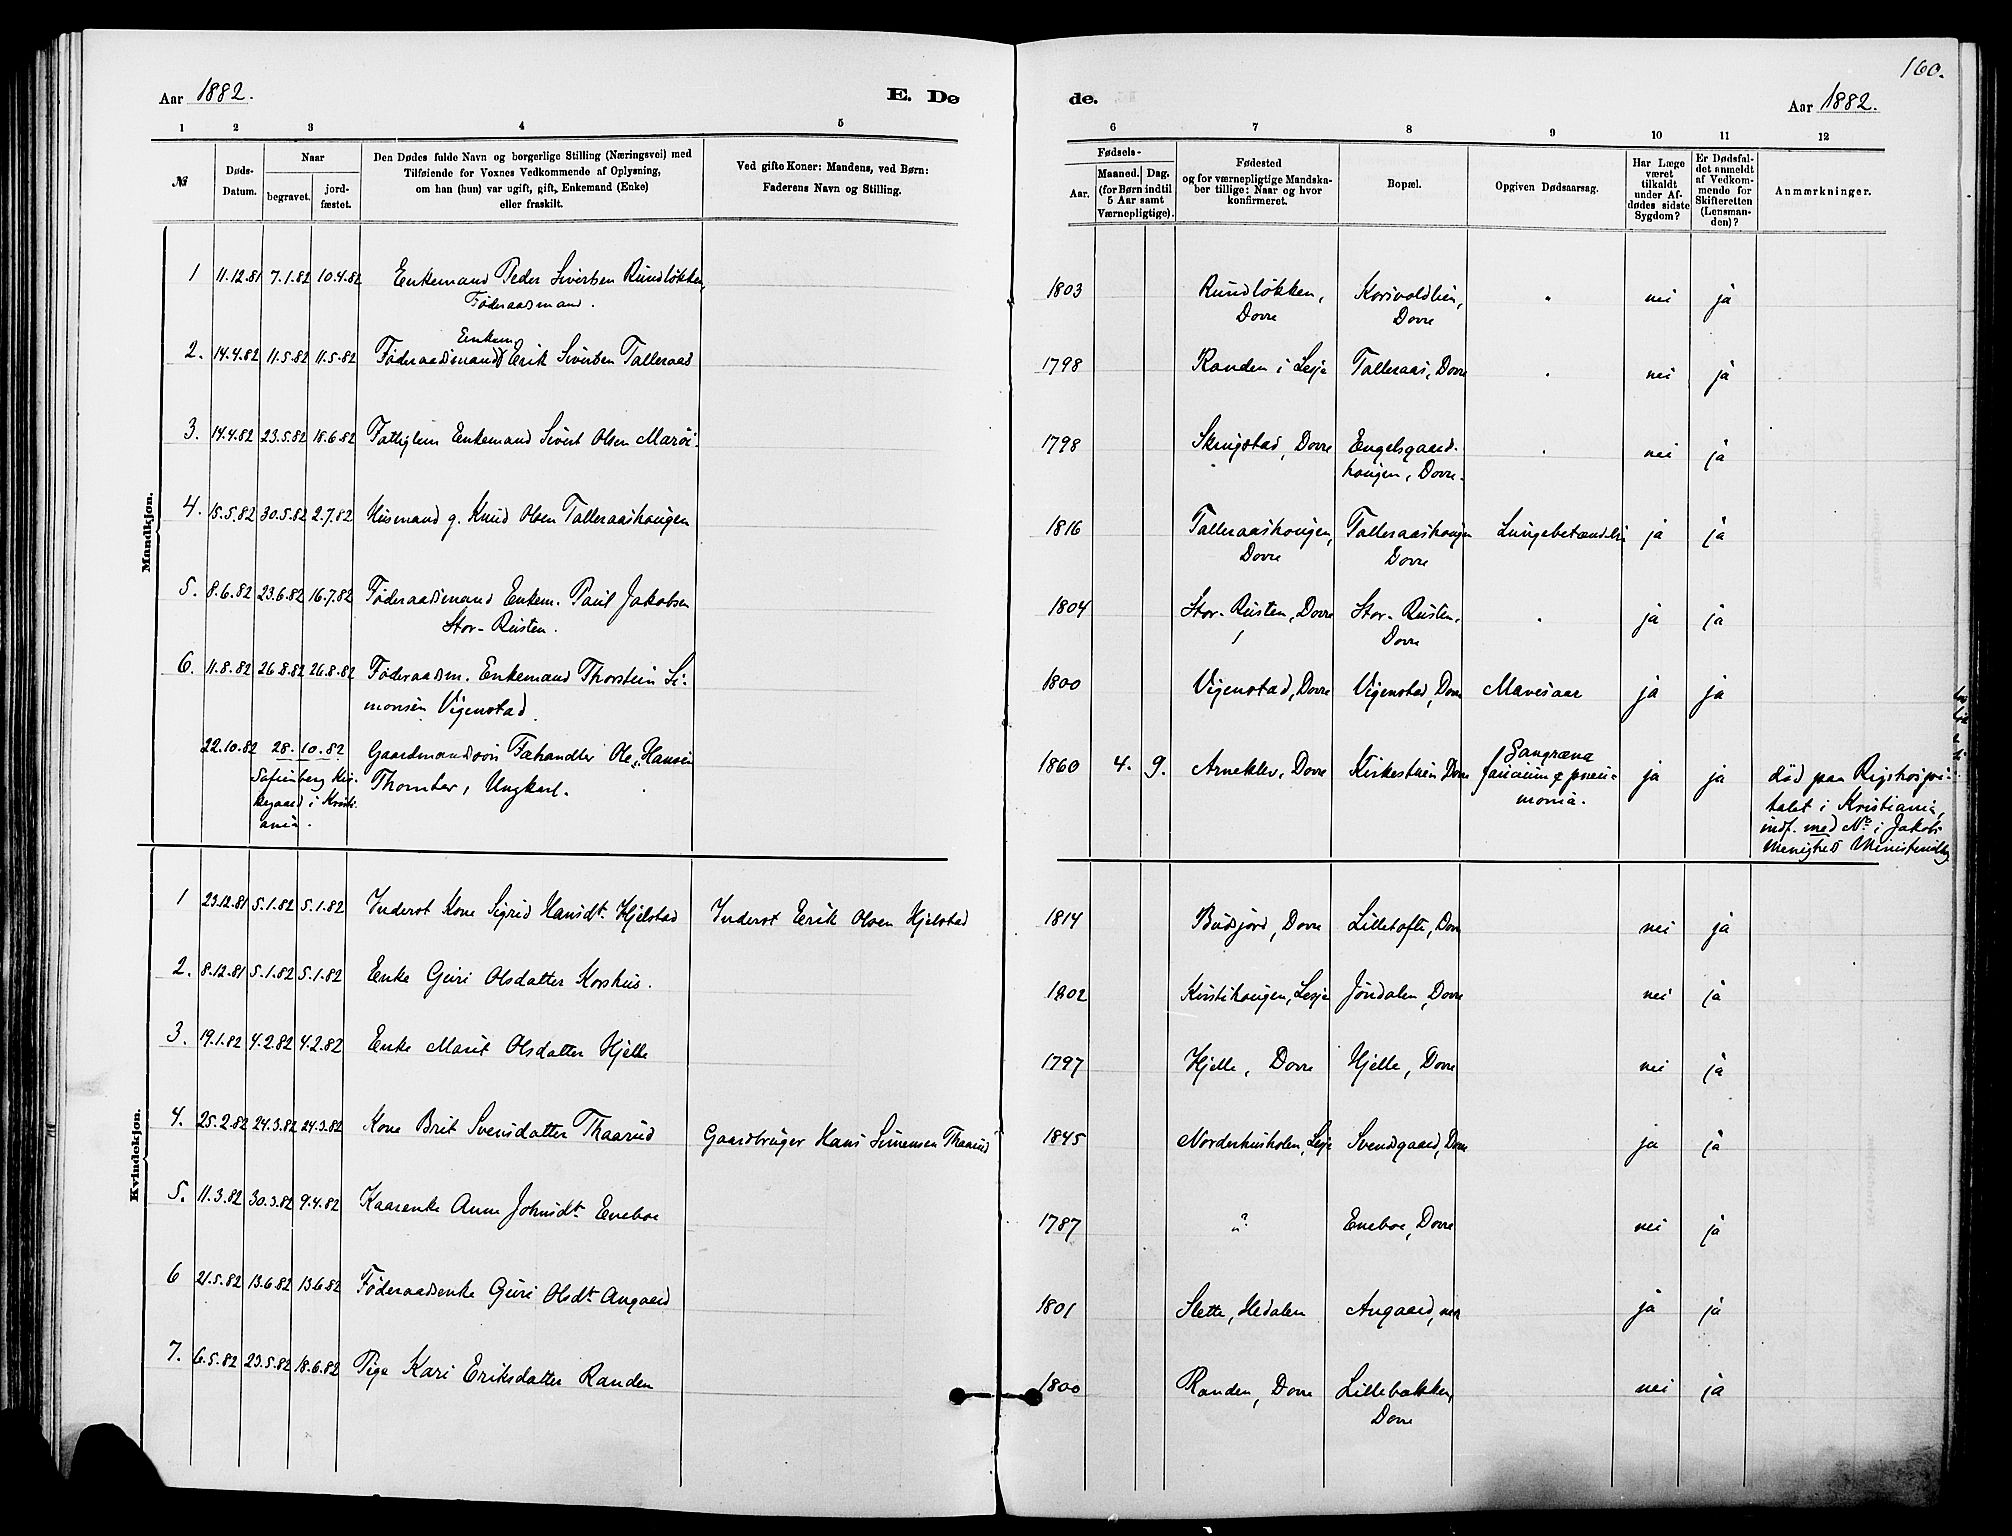 160.
Aar 1882.
E. Dø
de.
Aar 1882.
1 2 3 4 5
6 7 8 9 10 11 12
№
Døds-Datum.
Naar
begravet.
jord-fæstet.
Den Dødes fulde Navn og borgerlige Stilling (Næringsvei) med
Tilføiende for Voxnes Vedkommende af Oplysning,
om han (hun) var ugift, gift, Enkemand (Enke)
eller fraskilt.
Ved gifte Koner: Mandens, ved Børn:
Faderens Navn og Stilling.
Fødsels-
Aar.
Maaned. Dag.
(for Børn indtil
5 Aar samt
Værnepligtige).
Fødested
og for værnepligtige Mandska-
ber tillige: Naar og hvor
konfirmeret.
Bopæl.
Opgiven Dødsaarsag.
Har Læge
været
tilkaldt
under Af-
dødes sidste
Sygdom?
Er Dødsfal-
det anmeldt
af Vedkom-
mende for
Skifteretten
(Lensman-
den)?
Anmærkninger.
Mandkjøn.
1 11.12.81 7.1.82 10.4.82 Enkemand Peder Sivertsen Rundløkken, 1803 Rundløkken, Korsvoldlien, " nei ja
Føderaadsmand. Dovre Dovre
Enkem
2. 14.4.82 11.5.82 11.5.82 Føderaadsmand Erik Sivertsen Talleraas 1798 Randen i Lesje Talleraas, Dovre " nei ja
3. 14.4.82 23.5.82 18.6.82 Fattiglem Enkemand Sivert Olsen Marøi. 1798 Skrugstad, Dovre Engelsgaard- " nei ja
haugen, Dovre.
4. 15.5.82 30.5.82 2.7.82 Husmand g. Knud Olsen Talleraashaugen 1816 Talleraashougen, Talleraashaugen Lungebetændelse ja ja
Dovre Dovre
5. 8.6.82 23.6.82 16.7.82 Føderaadsmand Enkem. Paul Jakobsen 1804 Stor-Rusten, Dovre Stor-Rusten, " ja ja
Stor-Rusten. Dovre
6. 11.8.82 26.8.82 26.8.82 Føderaadsm. Enkemand Thorstein Si- 1800 Vigenstad, Dovre Vigenstad, Dovre Mavesaar ja ja
monsen Vigenstad.
22.10.82 28.10.82 Gaardmandssøn Fæhandler Ole Hansen 1860 4. 9. Arneklev, Dovre Kirkestuen Dovre Gangræna ja ja død paa Rigshospi-
Sofienberg Kir- Thomter, Ungkarl. & pneu- talet i Kristiania,
kegaard i Kristi- monia. indf. med No i Jakobs
ania. Menigheds Ministerialbog
Kvindekjøn.
1 23.12.81 5.1.82 5.1.82 Inderst Kone Sigrid Hansdt. Hjelstad Inderst Erik Olsen Hjelstad 1814 Budsjord, Dovre Lilletofte, Dovre nei ja
2. 8.12.81 5.1.82 5.1.82 Enke Guri Olsdatter Korshus. 1802 Kristihaugen, Lesje Jøndalen, Dovre nei ja
3. 19.1.82 4.2.82 4.2.82 Enke Marit Olsdatter Hjelle 1797 Hjelle, Dovre Hjelle, Dovre nei ja
4. 25.2.82 24.3.82 24.3.82 Kone Brit Svensdatter Thaarud Gaardbruger Hans Simensen Thaarud 1845 Norderhusholen, Lesje Svendsgaard, Dovre ja ja
5. 11.3.82 30.3.82 9.4.82 Kaarenke Anne Johnsdt. Eneboe 1787 " ? Eneboe, Dovre nei ja
6 21.5.82 13.6.82 13.6.82 Føderaadsenke Guri Olsdt. Angaard 1801 Slette, Hedalen Angaard, ja ja
7. 6.5.82 23.5.82 18.6.82 Pige Kari Eriksdatter Randen 1800 Randen, Dovre Lillebakken, nei ja
Dovre